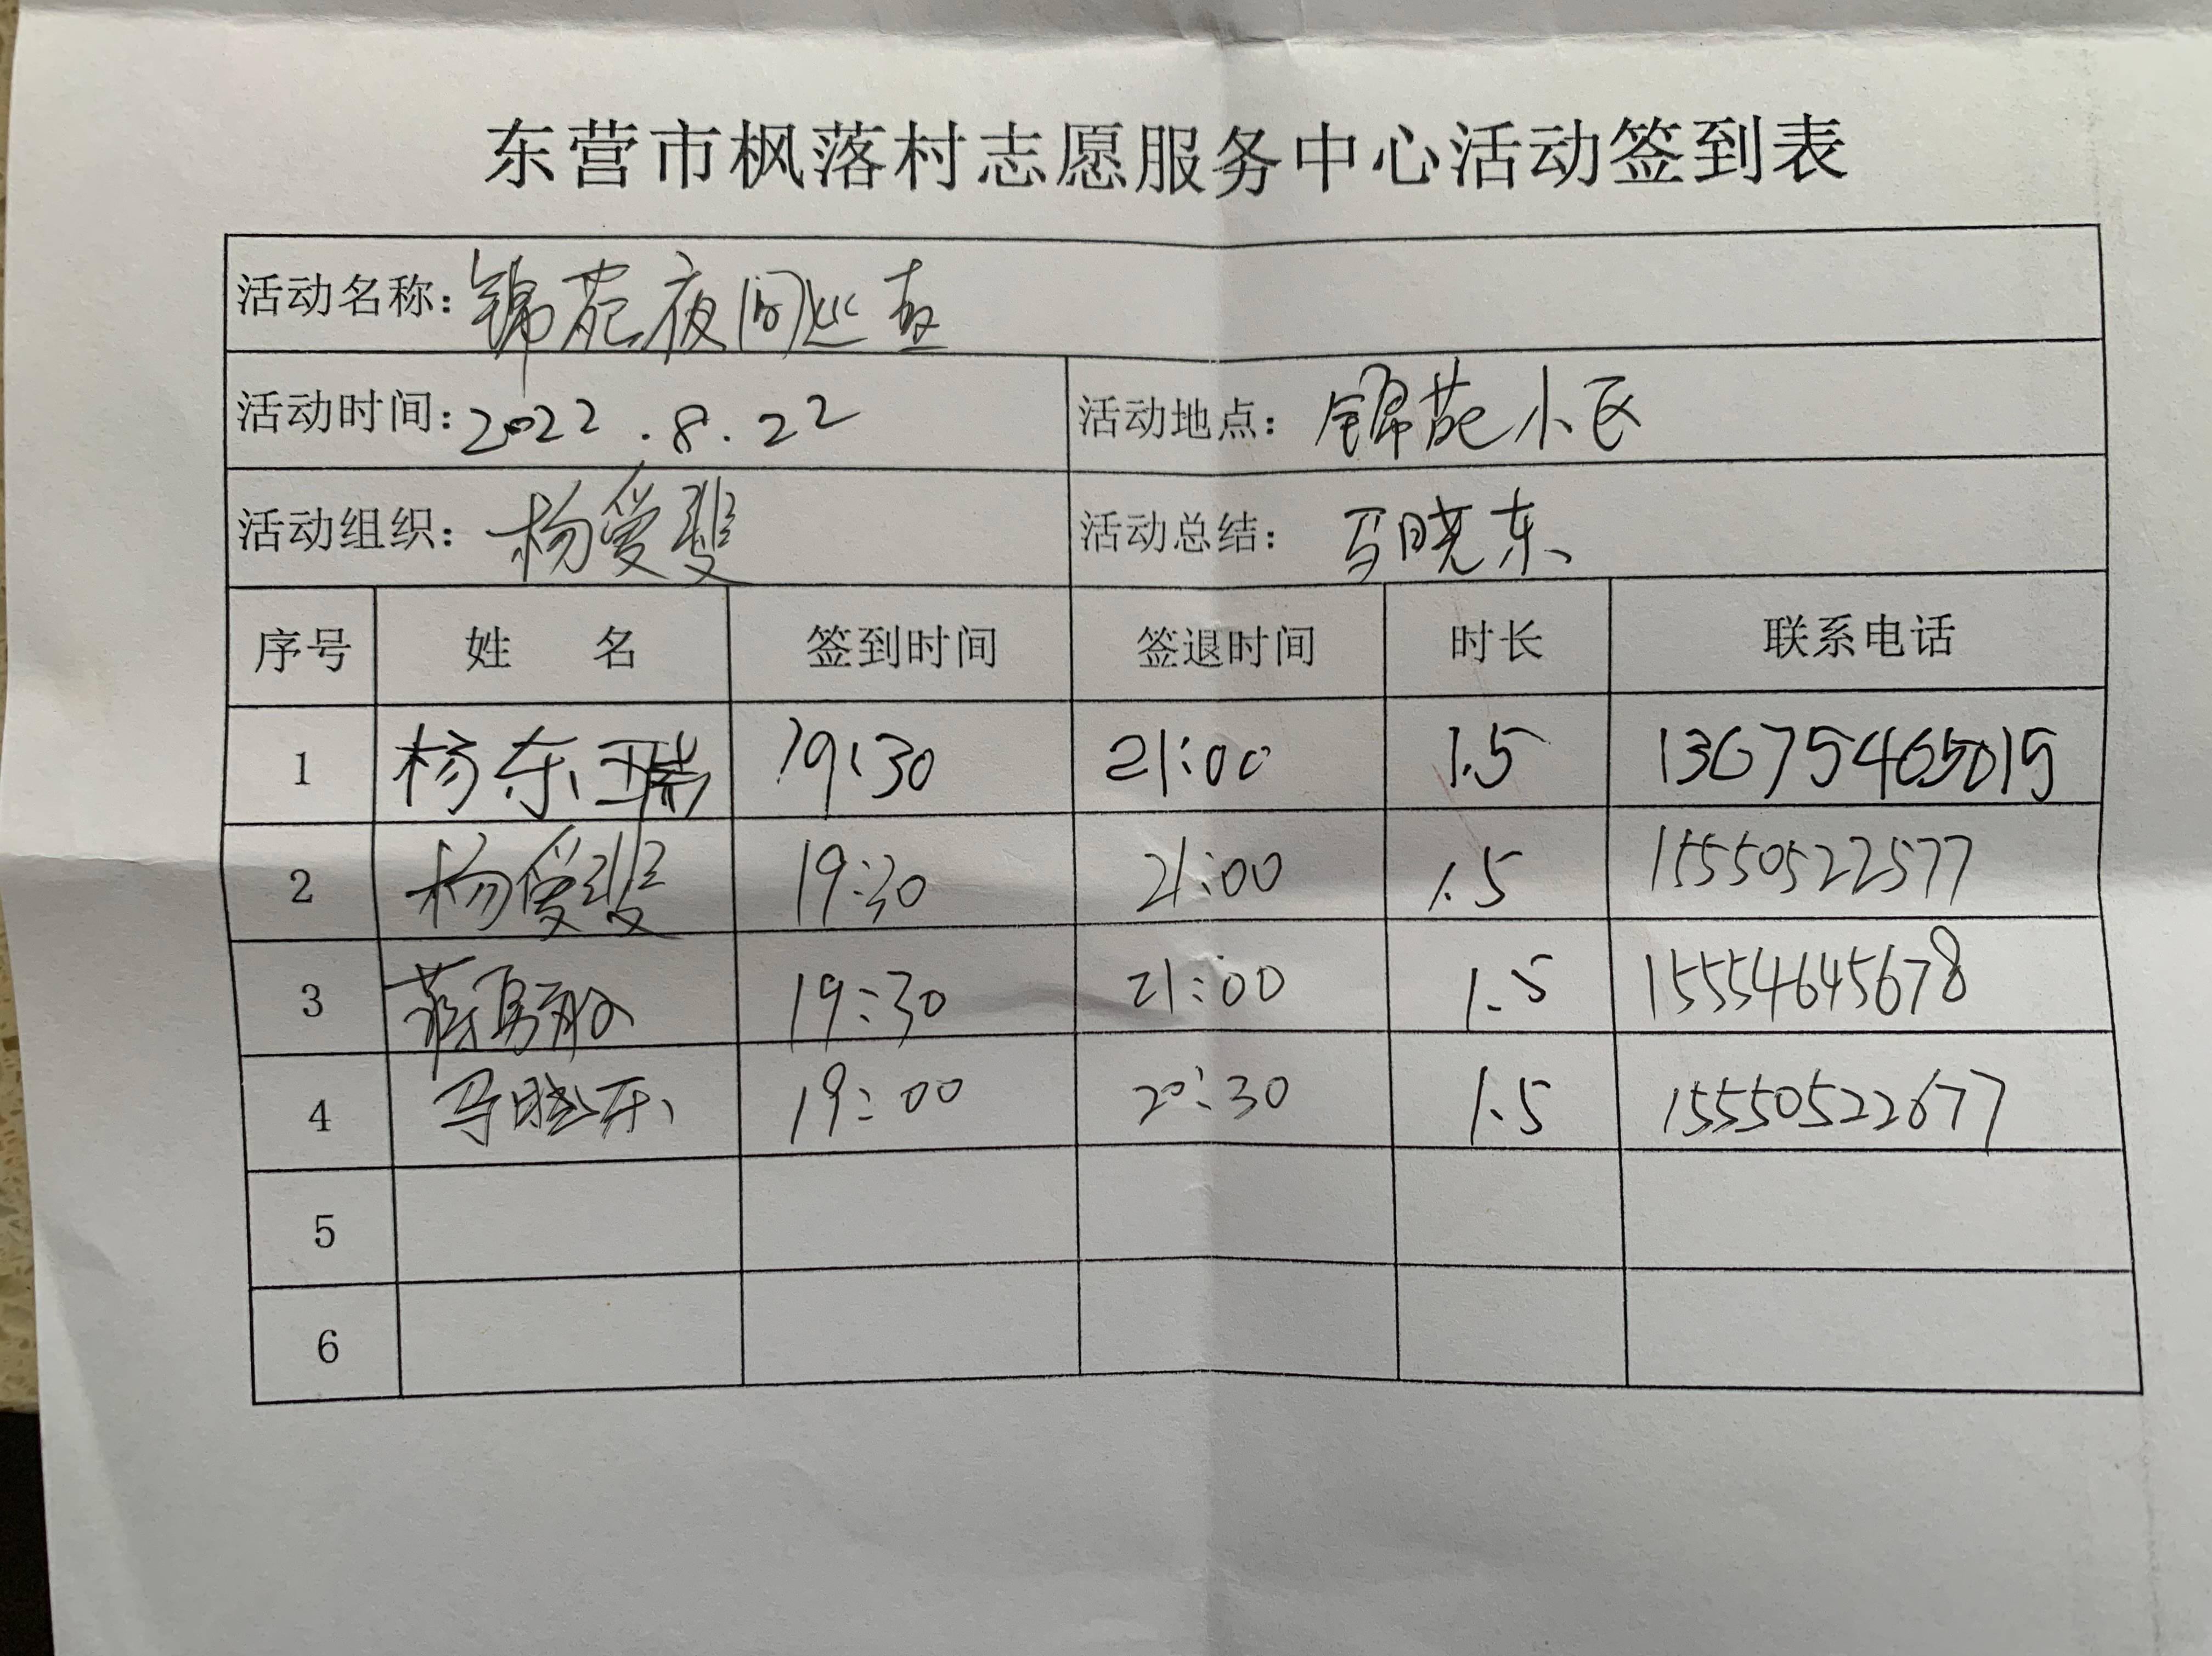 东营市枫落村志愿服务中心活动签到表
活动名称：锦苑夜间巡查
活动时间：2022.8.22 活动地点：锦苑小区
活动组织：杨爱斐 活动总结：马晓东
序号 姓名 签到时间 签退时间 时长 联系电话
1 杨东瑞 19:30 21:00 1.5 13675465015
2 杨爱斐 19:30 21:00 1.5 15550522577
3 19:30 21:00 1.5 15554645678
4 马晓东 19:00 20:30 1.5 15550522677
5
6